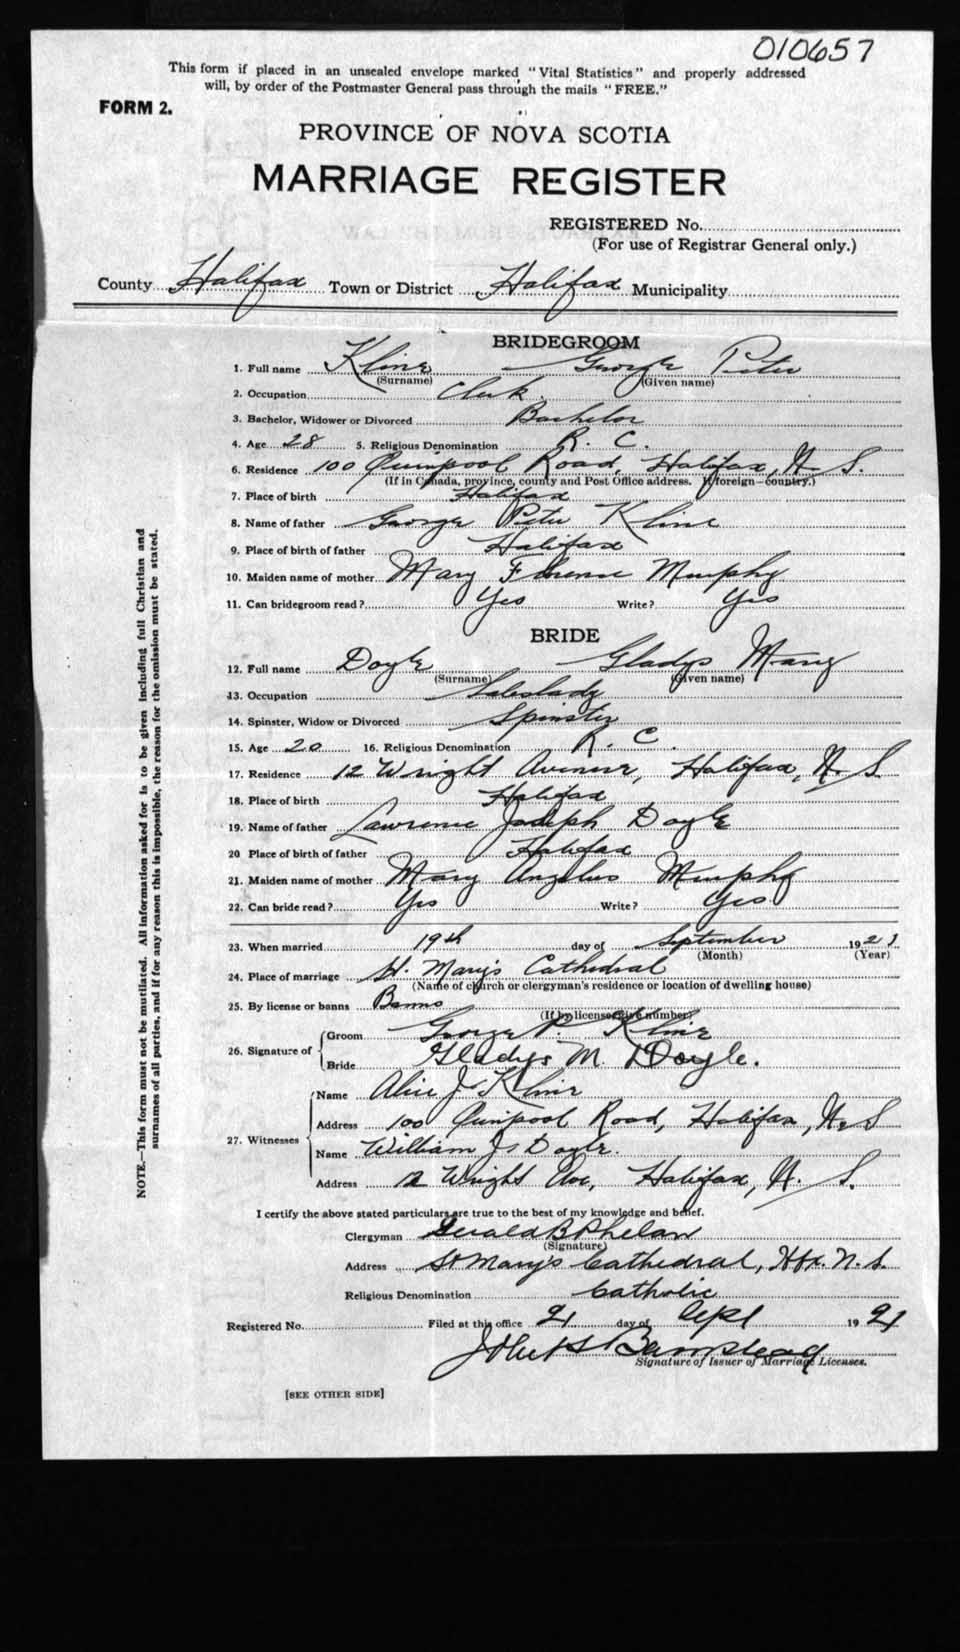 010657
This form if placed in an unsealed envelope marked "Vital Statistics" and properly addressed
will, by order of the Postmaster General pass through the mails "FREE."
FORM 2.
PROVINCE OF NOVA SCOTIA
MARRIAGE REGISTER
REGISTERED No.
(For use of Registrar General only.)
County Halifax Town or District Halifax Municipality
BRIDEGROOM
1. Full name Kline George Peter
(Surname) (Given name)
2. Occupation Clerk.
3. Bachelor, Widower or Divorced Bachelor
4. Age 28 5. Religious Denomination R. C.
6. Residence 100 Quinpool Road, Halifax, N. S.
(If in Canada, province, county and Post Office address. If foreign—country.)
7. Place of birth Halifax
8. Name of father George Peter Kline
9. Place of birth of father Halifax
10. Maiden name of mother Mary Florence Murphy
11. Can bridegroom read? Yes Write? Yes
BRIDE
12. Full name Doyle Gladys Mary
(Surname) (Given name)
13. Occupation Saleslady
14. Spinster, Widow or Divorced Spinster
15. Age 20 16. Religious Denomination R. C.
17. Residence 12 Wright Avenue, Halifax, N. S.
18. Place of birth Halifax
19. Name of father Lawrence Joseph Doyle
20 Place of birth of father Halifax
21. Maiden name of mother Mary Angelus Murphy
22. Can bride read? Yes Write? Yes
23. When married 19th day of September 1921
(Month) (Year)
24. Place of marriage St. Mary's Cathedral
(Name of church or clergyman's residence or location of dwelling house)
25. By license or banns Banns
(If by license give number)
26. Signature of Groom George P. Kline
Bride Gladys M. Doyle.
27. Witnesses Name Alice J. Kline
Address 100 Quinpool Road, Halifax, N. S
Name William J. Doyle.
Address 12 Wright Ave, Halifax, N. S.
I certify the above stated particulars are true to the best of my knowledge and belief.
Clergyman Gerald B Phelan
(Signature)
Address St Mary's Cathedral, Hfx. N. S.
Religious Denomination Catholic
Registered No. Filed at this office 21 day of Sept 1921
John H S Barnstead
Signature of Issuer of Marriage Licenses.
[SEE OTHER SIDE]
NOTE.—This form must not be mutilated. All information asked for is to be given including full Christian and
surnames of all parties, and if for any reason this is impossible, the reason for the omission must be stated.